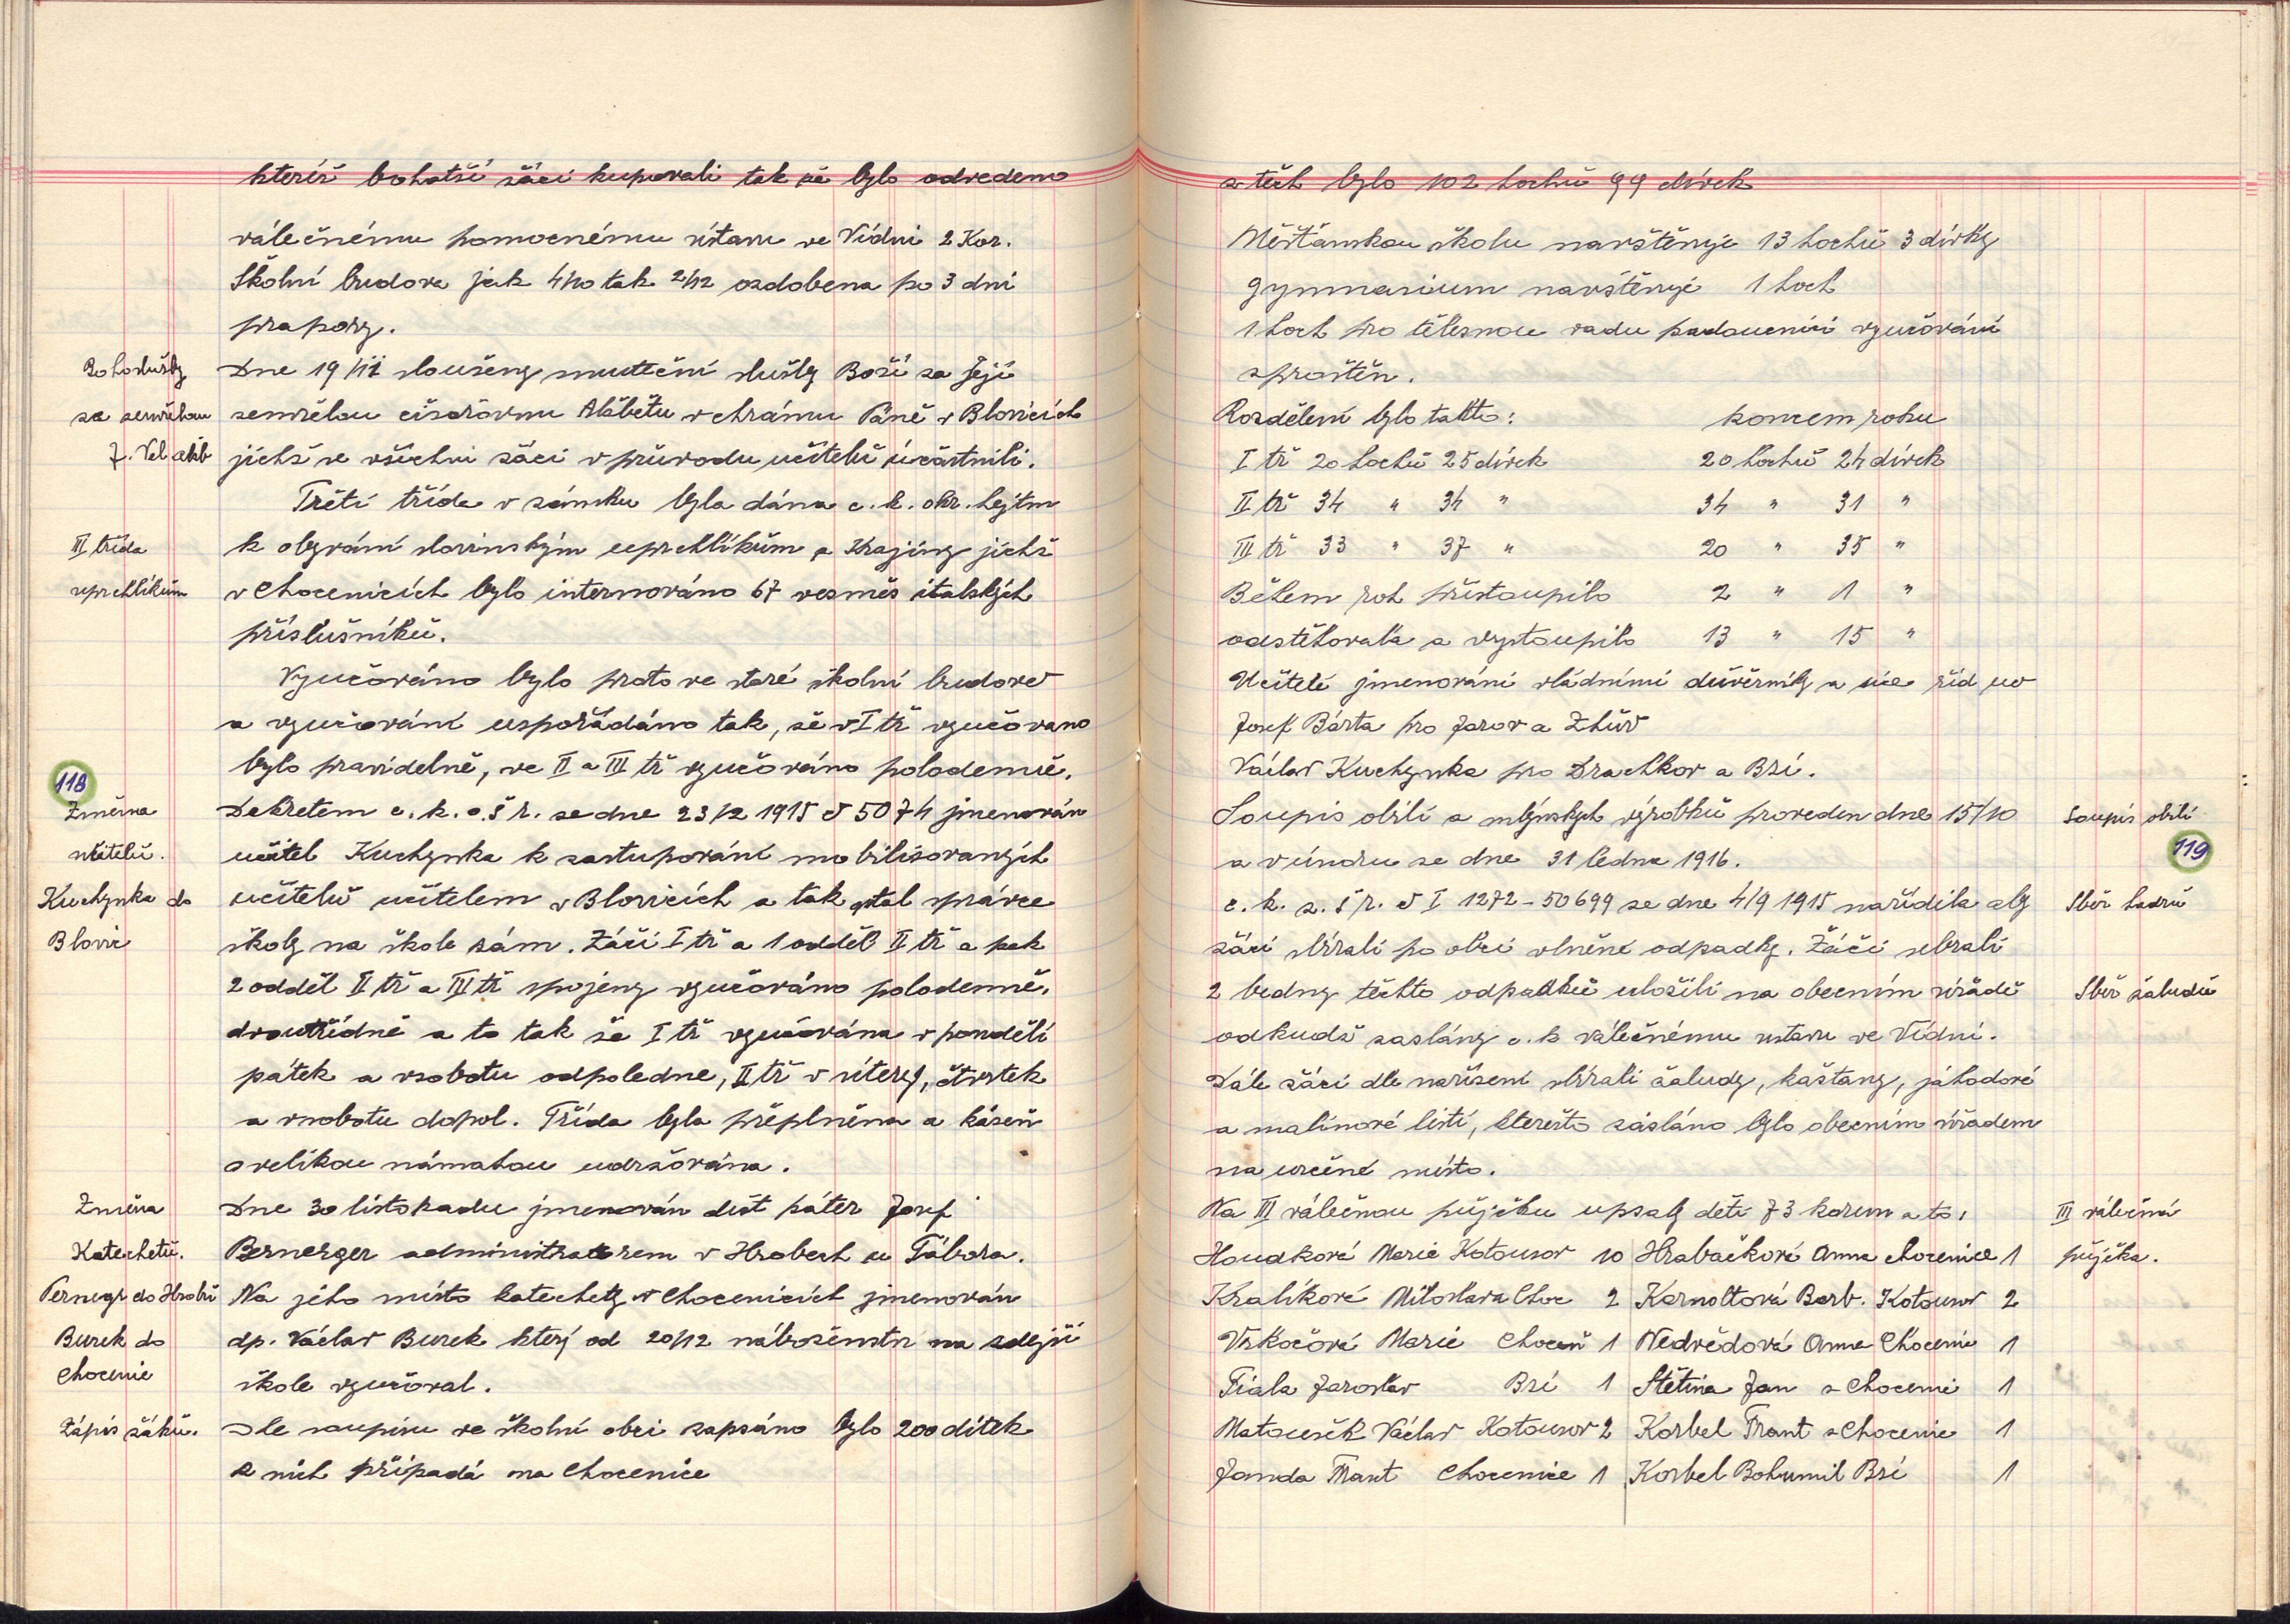 kteříž bohatší žáci kupovali tak že bylo odvedeno
válečnému pomocnému ústavu ve Vídni 2 Kor.
Školní budova jak 4/10 tak 2/12 ozdobena po 3 dni
prapory.
Bohoslužby
za zemřelou
J. Vel. alžb
Dne 19/11 slouženy smuteční služby Boží za Její
zemřelou císařovnu Alžbětu v chrámu Páně v Blovicích
jichž se všichni žáci v průvodu učitelů účastnili.
Třetí třída v zámku byla dána c. k. okr. hejtm
III třída
uprchlíkům
k obývání slovinským uprchlíkům z Krajiny jichž
v Chocenicích bylo internováno 67 vesměs italských
příslušníků.
Vyučováno bylo proto ve staré školní budově
a vyučování uspořádáno tak, že v I tř vyučovano
bylo pravidelně, ve II a III tř vyučováno polodenně.
118
Změna
učitelů.
Kuchynka do
Blovic
Dekretem c. k. o. š r. ze dne 23/2 1915 č 5074 jmenován
učitel Kuchynka k zastupování mobilisovaných
učitelů učitelem v Blovicích a tak zůstal správce
školy na škole sám. Žáci I tř a 1 odděl II tř a pak
2 odděl II tř a III tř spojeny vyučováno polodenně.
dvoutřídně a to tak že I tř vyučována v pondělí
pátek a vsobotu odpoledne, II tř v úterý, čtvrtek
a vsobotu dopol. Třída byla přeplněna a kázeň
s velikou námahou udržována.
Změna
Katechetů.
Pernegr do Hrobů
Burek do
Chocenic
Dne 30 listopadu jmenován dúst páter Josef
Bernerger administratorem v Hrobech u Tábora.
Na jeho místo katechety v Chocenicích jmenován
dp. Václav Burek který od 20/12 náboženství na zdejší
škole vyučoval.
Zápis žáků.
Dle soupisu ve školní obci zapsáno bylo 200 dítek
z nich připadá na Chocenice
z těch bylo 102 hochů 99 dívek
Měšťanskou školu navštěvuje 13 hochů 3 dívky
gymnasium navštěvuje 1 hoch
1 hoch pro tělesnou vadu vyučování
sproštěn.
Rozdělení bylo takto: koncem roku
I tř 20 hochů 25 dívek 20 hochů 24 dívek
II tř 34 " 34 " 34 " 31 "
III tř 33 " 37 " 20 " 35 "
Během rok přistoupilo 2 " 1 "
odstěhovala a vystoupilo 13 " 15 "
Učitelé jmenováni vládními důvěrníky a
Josef Bárta pro Jarov a Zhůř
Václav Kuchynka pro Drachkov a Bzí.
Soupis obilí a mlýnských výrobků proveden dne 15/10
a v únoru ze dne 31 ledna 1916.
Soupis obilí
119
c. k. z. š r. č I 1272-50699 ze dne 4/9 1915 nařídila aby
žáci sbírali po obci vlněné odpadky. Žáci sebrali
2 bedny těchto odpadků uložili na obecním úřadě
odkudž zaslány c. k válečnému ustavu ve Vídni.
Sběr hadrů
Sběr žaludů
Dále žáci dle nařízení sbírali žaludy, kaštany, jahodové
a malinové listí, kteréžto zásláno bylo obecním úřadem
na určené místo.
Na III válečnou půjčku upsaly děti 73 korun a to:
III válečná
půjčka.
Houdková Marie Kotousov 10 Hrabačková Anna Chocenice 1
Králíková Miloslava Choc 2 Karnoltová Barb. Kotousov 2
Vrkočová Marie Chocen 1 Nedvědová Anna Chocenic 1
Fiala Jaroslav Bzí 1 Štětina Jan z Chocenic 1
Matoušek Václav Kotousov 2 Korbel Frant z Chocenic 1
Janda Frant Chocenice 1 Korbel Bohumil Bzí 1